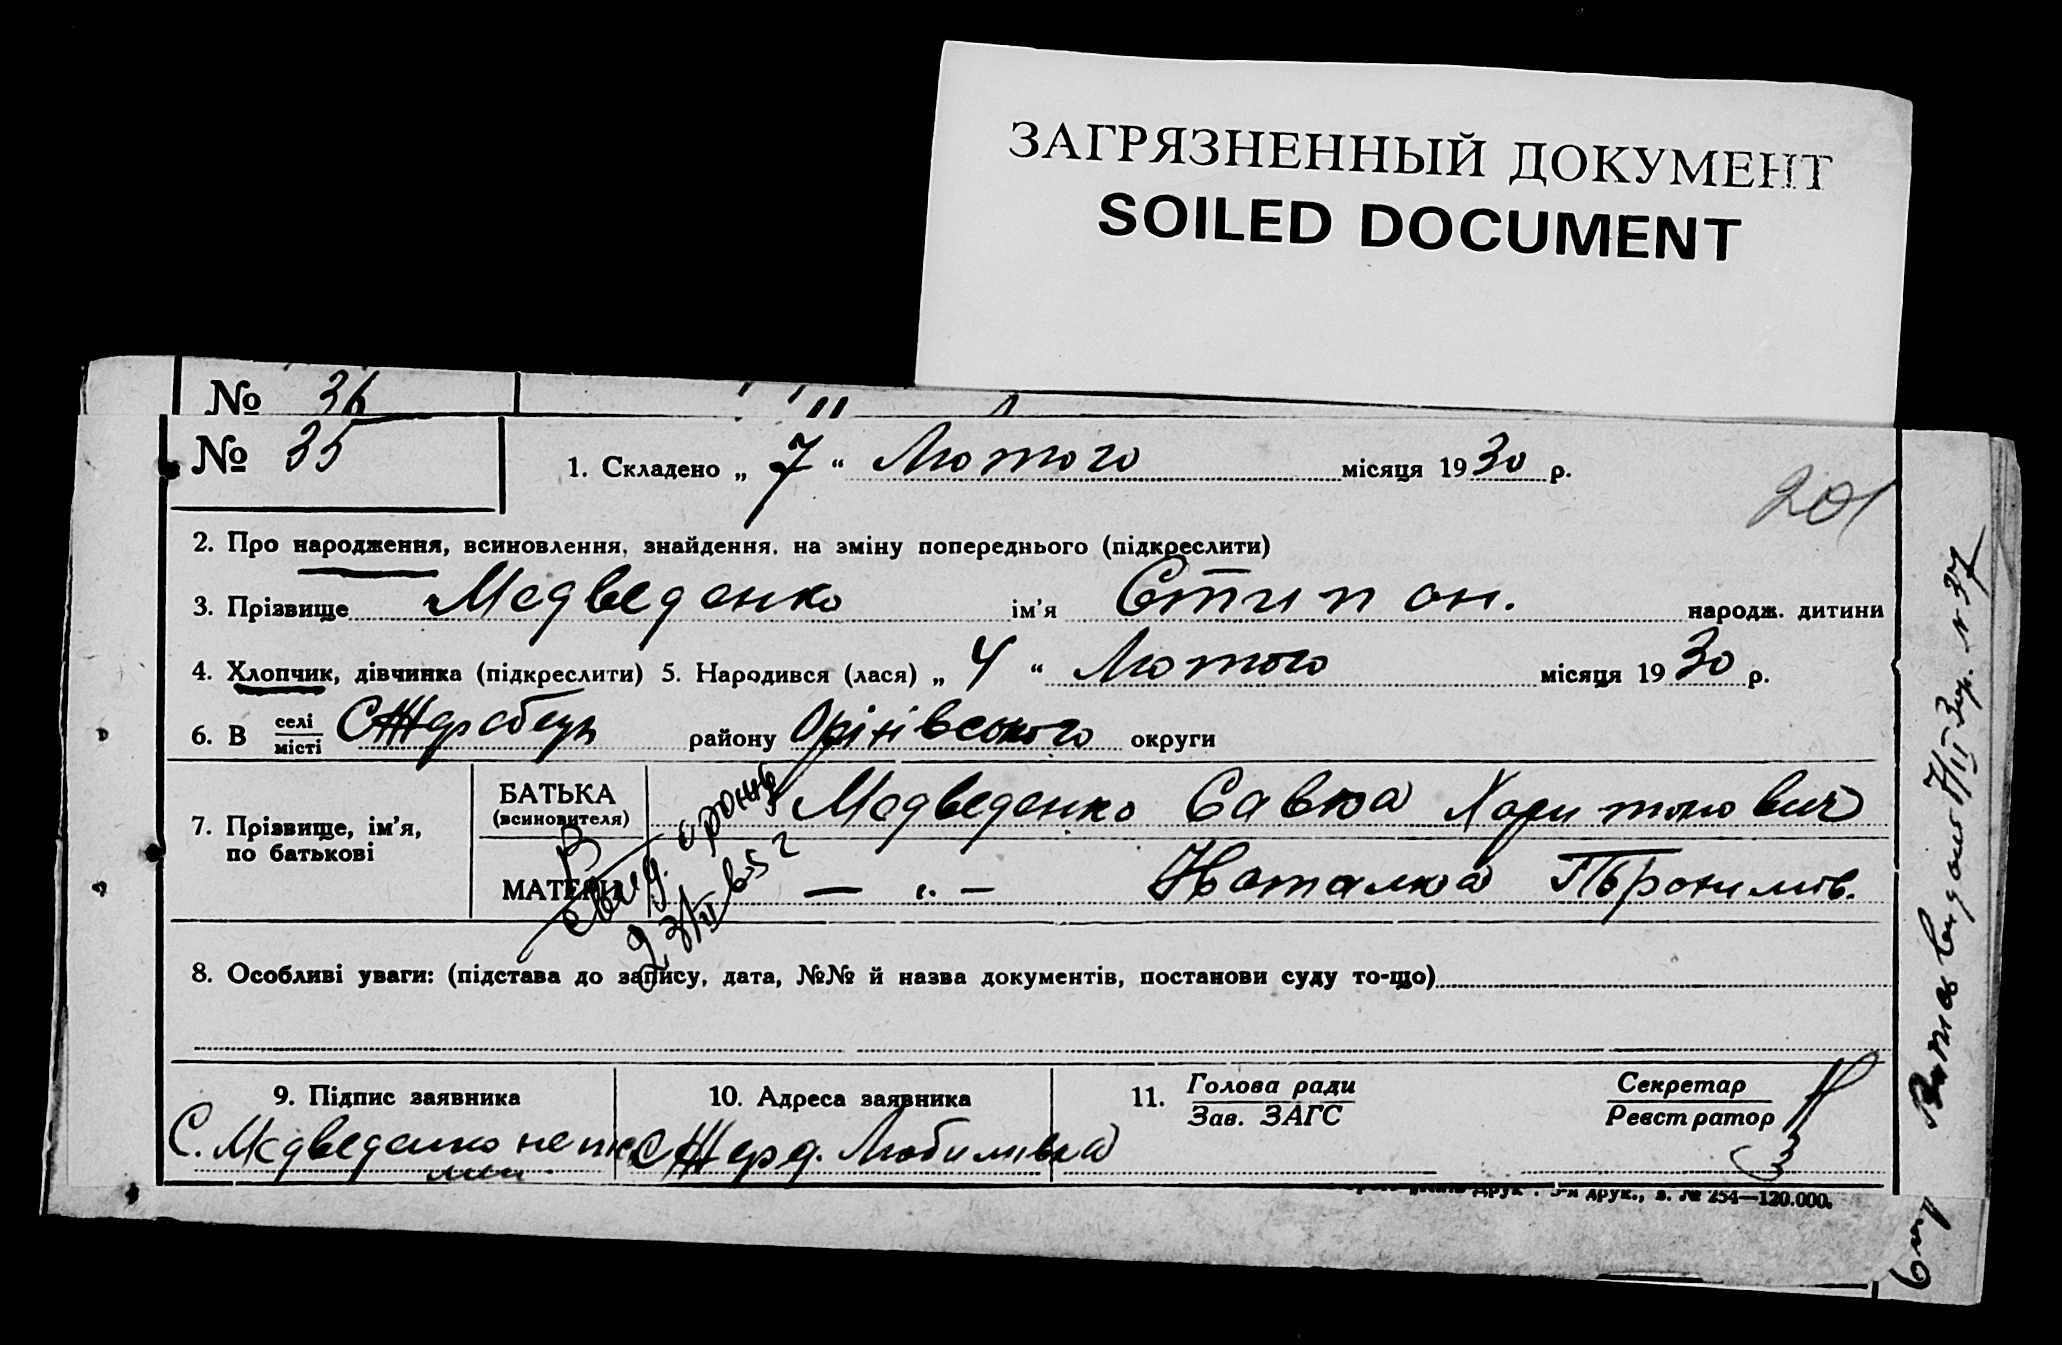 ЗАГРЯЗНЕННЫЙ ДОКУМЕНТ
SOILED DOCUMENT
№ 36
№ 35
1. Складено „ 7 “ Лютого місяця 1930 р.
201
2. Про народження, всиновлення, знайдення, на зміну попереднього (підкреслити)
3. Прізвище Медведенко ім’я Стипон. народж. дитини
4. Хлопчик, дівчинка (підкреслити) 5. Народився (лася) „ 4 “ Лютого місяця 1930 р.
6. В селі місті С Жеребець району Орінівського округи
7. Прізвище, ім’я, по батькові
БАТЬКА (всиновителя) Медведенко Савка Харитонович
МАТЕРИ — „ — Наталка
8. Особливі уваги: (підстава до запису, дата, №№ й назва документів, постанови суду то-що)
9. Підпис заявника
С. Медведенко
10. Адреса заявника
Любимівка
11. Голова ради
Зав. ЗАГС
Секретар
Реєстратор
друк., з. № 254—120.000.